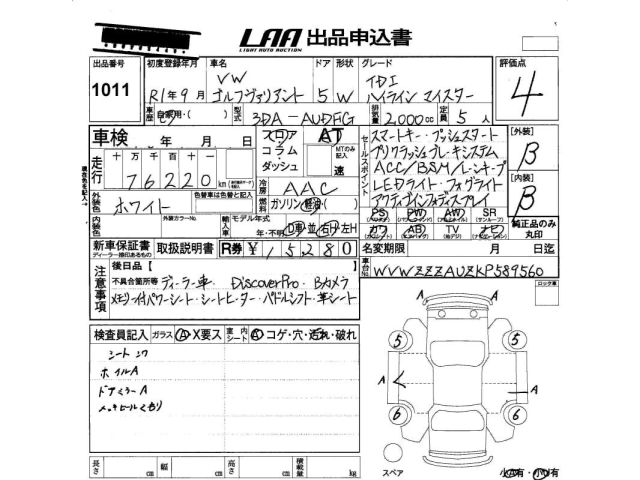 LAA 出品申込書
LIGHT AUTO AUCTION
出品番号 初度登録年月 車名 ドア 形状 グレード 評価点
1011 R1年9月 VW ゴルフヴァリアント 5 W TDI ハイラインマイスター 4
車歴 自家用・( 型式 3DA-AUDFG 排気量 2000cc 定員 5人
車検 年 月 日 フロア コラム・ダッシュ AT MTのみ記入 速
走行 十万千百十 76220km
冷房 AAC
燃料 ガソリン・軽油・( )
外装色 ホワイト 色替車は色替と記入
外装カラーNo. 内装色 輸入車 モデル年式 年・不明 D車・並・右H・左H
セールスポイント
スマートキー・プッシュスタート
プリクラッシュブレーキシステム
ACC/BSM/レーンキープ
LEDライト・フォグライト
アクティブインフォディスプレイ
【外装】 B
【内装】 B
PS PW AW SR
カワ AB TV ナビ
純正品のみ丸印
新車保証書 取扱説明書 R券 ¥15,280 名変期限 月 日迄
ディーラー捺印あるもの
車台No. WVWZZZAUZKP589560
注意事項 後日品【 】
不具合箇所等 ディーラー車・DiscoverPro・Bカメラ
メモリー付パワーシート・シートヒーター・パドルシフト・革シート
ロック車
検査員記入 ガラス A・X要ス 室内シート A・コゲ・穴・汚れ・破れ
シートシワ
ホイルA
ドアミラーA
メッキモールくもり
A 5 5 A A 6 6
長さ cm 幅 cm 高さ cm 積載量 kg
スペア